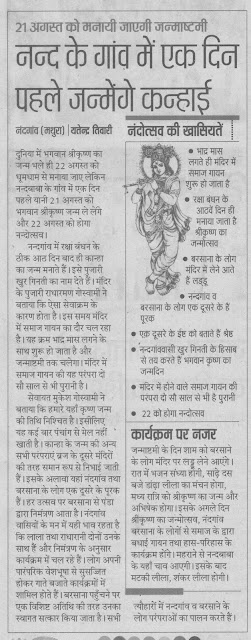 21 अगस्त को मनायी जाएगी जन्माष्टमी
नन्द के गांव में एक दिन
पहले जन्मेंगे कन्हाई
नंदगांव (मथुरा) | यतेन्द्र तिवारी
दुनिया में भगवान श्रीकृष्ण का
जन्म भले ही 22 अगस्त को
धूमधाम से मनाया जाए लेकिन
नन्दबाबा के गांव में एक दिन
पहले यानी 21 अगस्त को
भगवान श्रीकृष्ण जन्म ले लेंगे
और 22 अगस्त को होगा
नन्दोत्सव।
नन्दगांव में रक्षा बंधन के
ठीक आठ दिन बाद ही कान्हा
का जन्म मनाते हैं। इसे पुजारी
खुर गिनती का नाम देते हैं। मंदिर
के पुजारी राधारमण गोस्वामी ने
बताया कि ऐसा सेवाक्रम के
कारण होता है। इस समय मंदिर
में समाज गायन का दौर चल रहा
है। यह क्रम भाद्र मास लगने के
साथ शुरू हो जाता है और
जन्माष्टमी तक चलेगा। मंदिर में
समाज गायन की यह परंपरा दो
सौ साल से भी पुरानी है।
सेवायत मुकेश गोस्वामी ने
बताया कि हमारे यहाँ कृष्ण जन्म
की तिथि निश्चित है। इसीलिए
यह कई बार पंचांग से मेल नहीं
खाती है। कान्हा के जन्म की अन्य
सभी परंपराएं ब्रज के दूसरे मंदिरों
की तरह समान रूप से निभाई जाती
हैं। इसके अलावा यहां नंदगांव तथा
बरसाना के लोग एक दूसरे के पूरक
हैं। हर उत्सव पर बरसाना से पंडा
द्वारा निमंत्रण आता है। नंदगांव
वासियों के मन में यही भाव रहता है
कि लाला तथा राधारानी दोनों उनके
साथ हैं और निमंत्रण के अनुसार
कार्यक्रम में चल रहे हैं। लोग अपनी
पारंपरिक वेशभूषा से सुसज्जित
होकर गाते बजाते कार्यक्रमों में
शामिल होते हैं। बरसाना पहुंचने पर
एक विशिष्ट अतिथि की तरह उनका
स्वागत सत्कार किया जाता है। सभी
नंदोत्सव की खासियतें
● भाद्र मास
लगते ही मंदिर में
समाज गायन
शुरू हो जाता है
● रक्षा बंधन के
आठवें दिन ही
मनाया जाता है
श्रीकृष्ण का
जन्मोत्सव
● बरसाना के लोग
मंदिर में लेने आते
हैं लड्डू
● नन्दगांव व
बरसाना के लोग एक दूसरे के हैं
पूरक
● एक दूसरे के ईष्ट को बताते हैं श्रेष्ठ
● नन्दगांववासी खुर गिनती के हिसाब
से तय करते हैं भगवान कृष्ण का
जन्मदिन
● मंदिर में होने वाले समाज गायन की
परंपरा दो सौ साल से भी है पुरानी
● 22 को होगा नन्दोत्सव
कार्यक्रम पर नजर
जन्माष्टमी के दिन शाम को बरसाने
के लोग मंदिर पर लड्डू लेने आएंगे।
रात में भजन संध्या होगी, साढ़े दस
बजे डांड़ा लीला का मंचन होगा,
मध्य रात्रि को श्रीकृष्ण का जन्म और
अभिषेक होगा। इसके अगले दिन
श्रीकृष्ण का जन्मोत्सव, नंदगांव
बरसाना के लोगों से समाज के द्वारा
बधाई गायन तथा हास-परिहास के
कार्यक्रम होंगे। महराने से नन्दबाबा
के यहाँ चाव आएगी। इसके बाद
मटकी लीला, शंकर लीला होगी।
त्यौहारों में नन्दगांव व बरसाने के
लोग परंपराओं का पालन करते हैं।